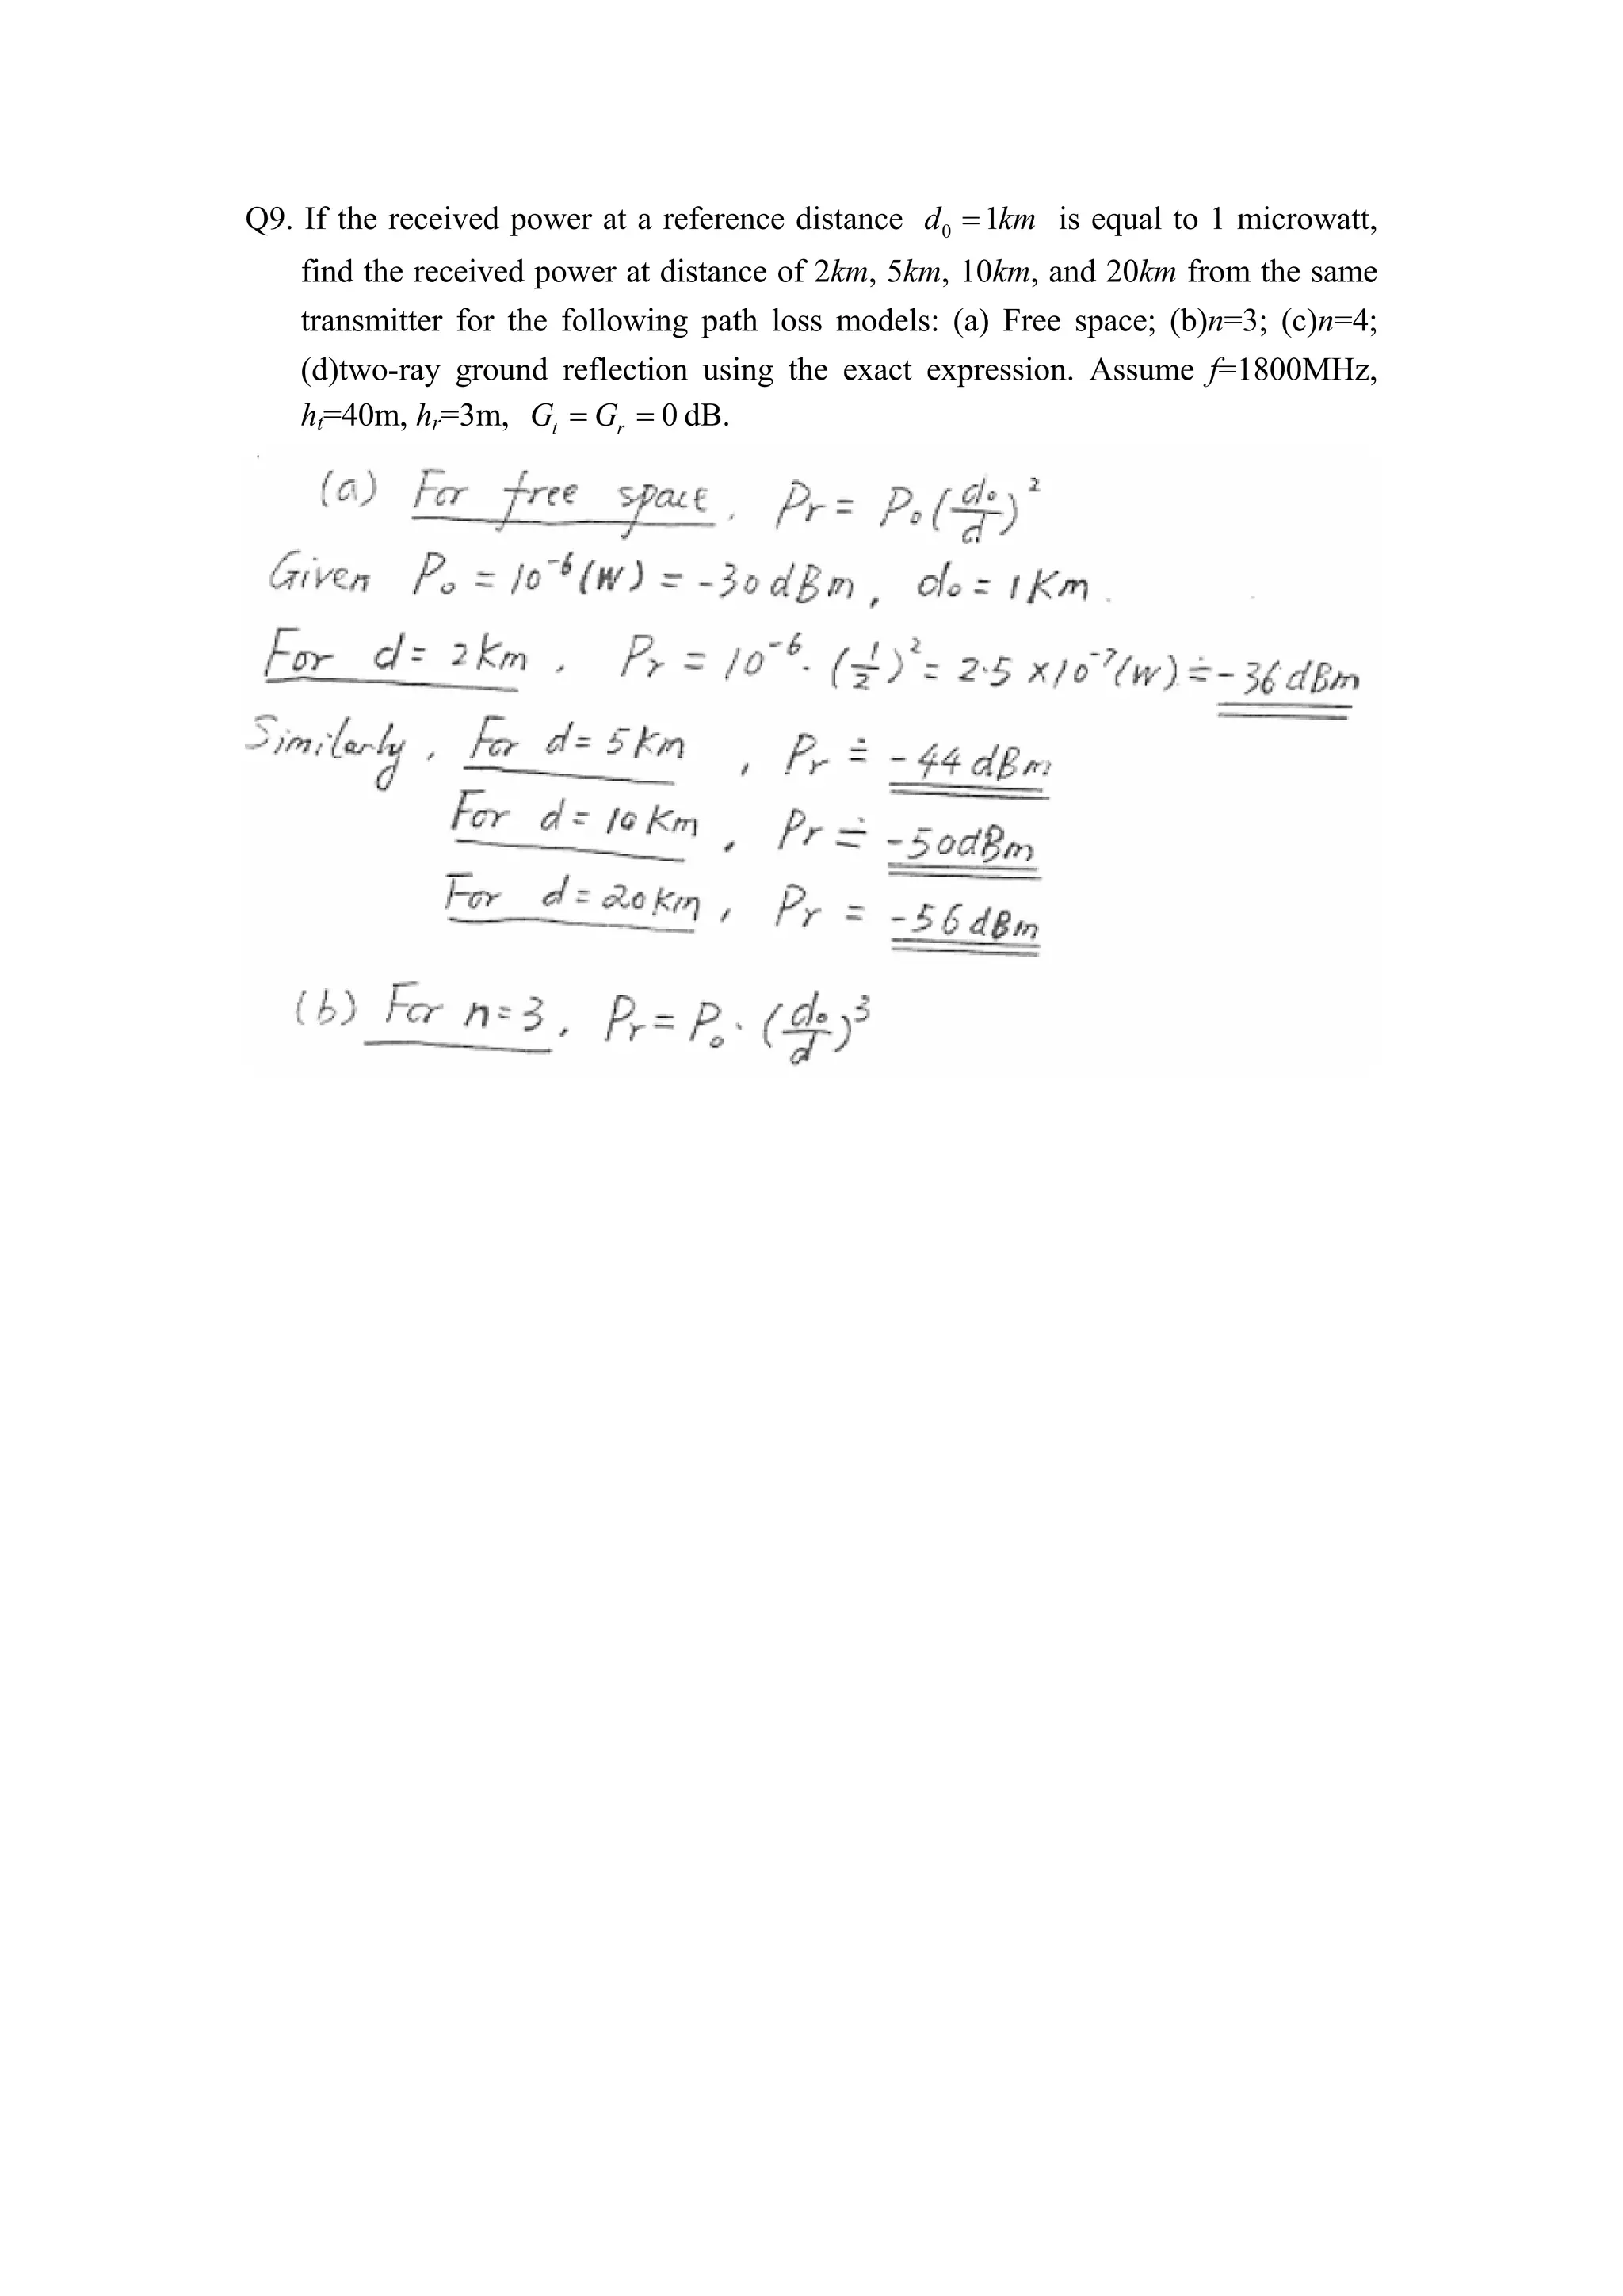 Q9. If the received power at a reference distance d₀ = 1km is equal to 1 microwatt,
find the received power at distance of 2km, 5km, 10km, and 20km from the same
transmitter for the following path loss models: (a) Free space; (b)n=3; (c)n=4;
(d)two-ray ground reflection using the exact expression. Assume f=1800MHz,
hₜ=40m, hᵣ=3m, Gₜ = Gᵣ = 0 dB.
(a) For free space, Pr = P₀(d₀/d)²
Given P₀ = 10⁻⁶(W) = -30dBm, d₀ = 1Km.
For d = 2km, Pr = 10⁻⁶·(1/2)² = 2.5 ×10⁻⁷(w) ≐ -36dBm
Similarly, For d = 5km, Pr ≐ -44dBm
For d = 10Km, Pr ≐ -50dBm
For d = 20km, Pr = -56dBm
(b) For n=3, Pr = P₀·(d₀/d)³